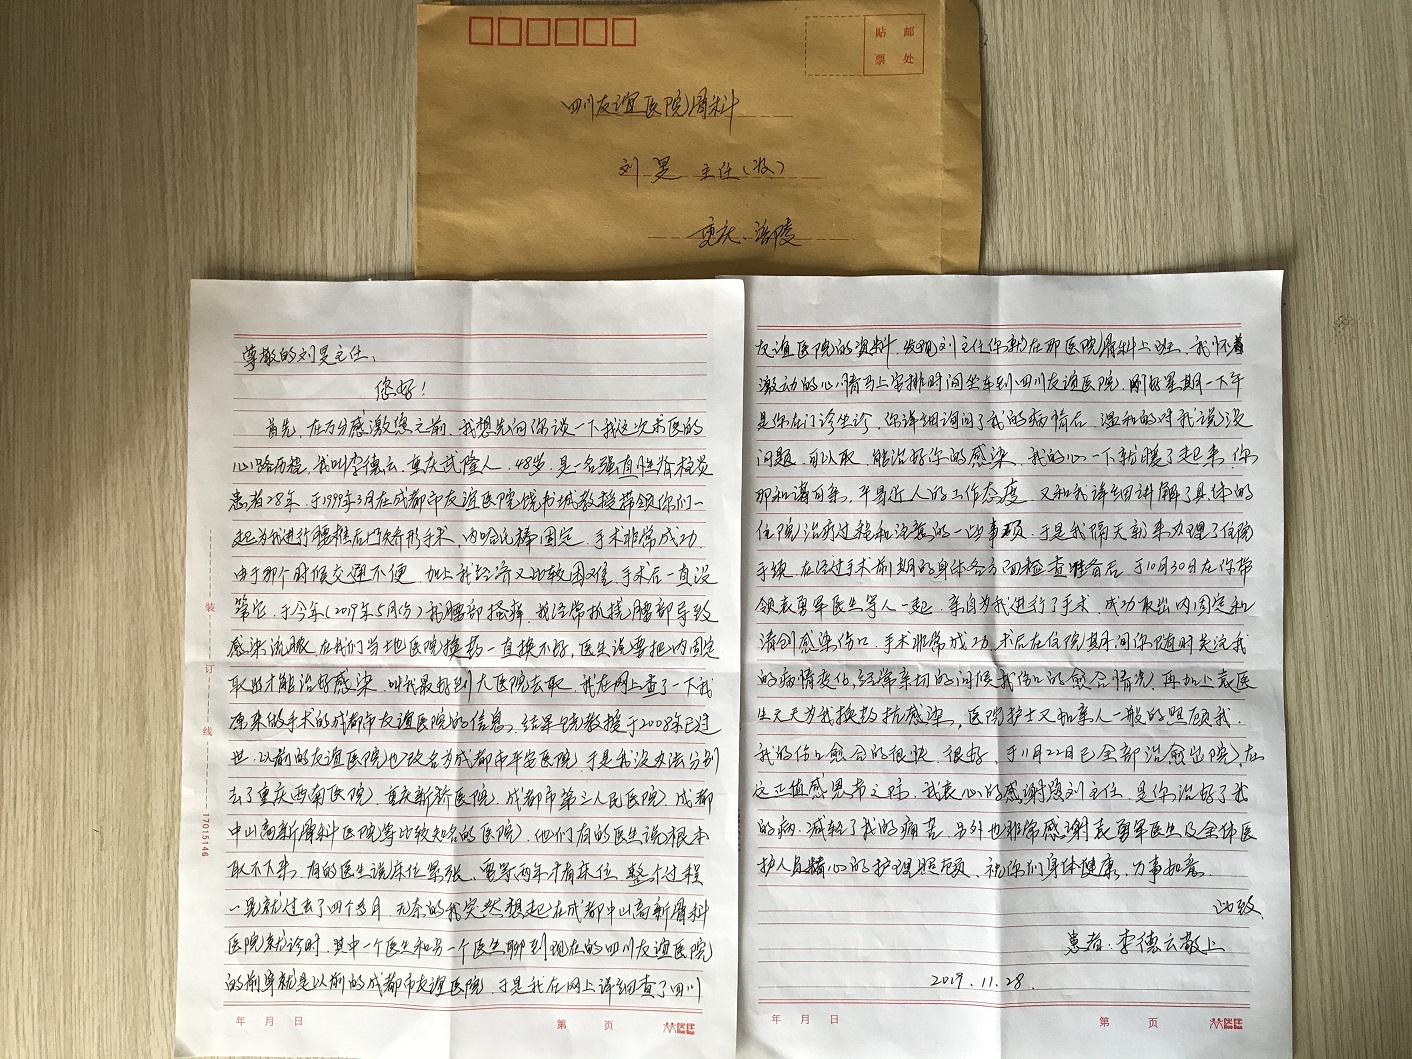 贴 邮
票 处
四川友谊医院骨科
刘昊 主任(收)
重庆·涪陵
尊敬的刘昊主任:
您好!
首先,在万分感激您之前,我想先向你说一下我这次求医的
心路历程,我叫李德云,重庆武隆人,48岁,是一名强直性脊柱炎
患者28年,于1999年3月在成都市友谊医院饶书城教授带领你们一
起为我进行腰椎后凸矫形手术,内哈氏棒固定,手术非常成功,
由于那个时候交通不便,加上我经济又比较困难,手术后一直没
管它,于今年(2019年5月份)我腰部搔痒,我经常抓挠腰部导致
感染流脓,在我们当地医院换药一直换不好,医生说要把内固定
取出才能治好感染,叫我最好到大医院去取,我在网上查了一下我
原来的手术的成都市友谊医院的信息,结果饶教授于2008年已过
世,以前的友谊医院也改名为成都市平安医院,于是我没办法分别
去了重庆西南医院,重庆新桥医院,成都市第三人民医院,成都
中山高新骨科医院等比较知名的医院,他们有的医生说根本
取不下来,有的医生说床位紧张,要等两年才有床位,整个过程
一晃就过去了四个多月,无奈的我突然想起在成都中山高新骨科
医院就诊时,其中一个医生和另一个医生聊到现在的四川友谊医院
的前身就是以前的成都市友谊医院,于是我在网上详细查了四川
装
订
线
17015146
年 月 日
第 页
友谊医院的资料,发现刘主任你就在那医院骨科上班,我怀着
激动的心情马上安排时间坐车到四川友谊医院,刚好星期一下午
是你在门诊坐诊,你详细询问了我的病情后,温和的对我说:没
问题,可以取,能治好你的感染,我的心一下就暖了起来,你
那和蔼可亲,平易近人的工作态度,又和我详细讲解了具体的
住院治疗过程和注意的一些事项,于是我隔天就来办理了住院
手续,在经过手术前期的身体各方面检查准备后,于10月30日在你带
领袁勇军医生等人一起,亲自为我进行了手术,成功取出内固定和
清创感染伤口,手术非常成功,术后在住院期间你随时关注我
的病情变化,经常亲切的问候我伤口的愈合情况,再加上袁医
生天天为我换药抗感染,医院护士又和亲人一般的照顾我,
我的伤口愈合的很快,很好,于11月22日已全部治愈出院,在
这正值感恩节之际,我衷心的感谢您刘主任,是你治好了我
的病,减轻了我的痛苦,另外也非常感谢袁勇军医生及全体医
护人员精心的护理照顾,祝你们身体健康,万事如意.
此致
患者:李德云敬上
2019.11.28.
年 月 日
第 页